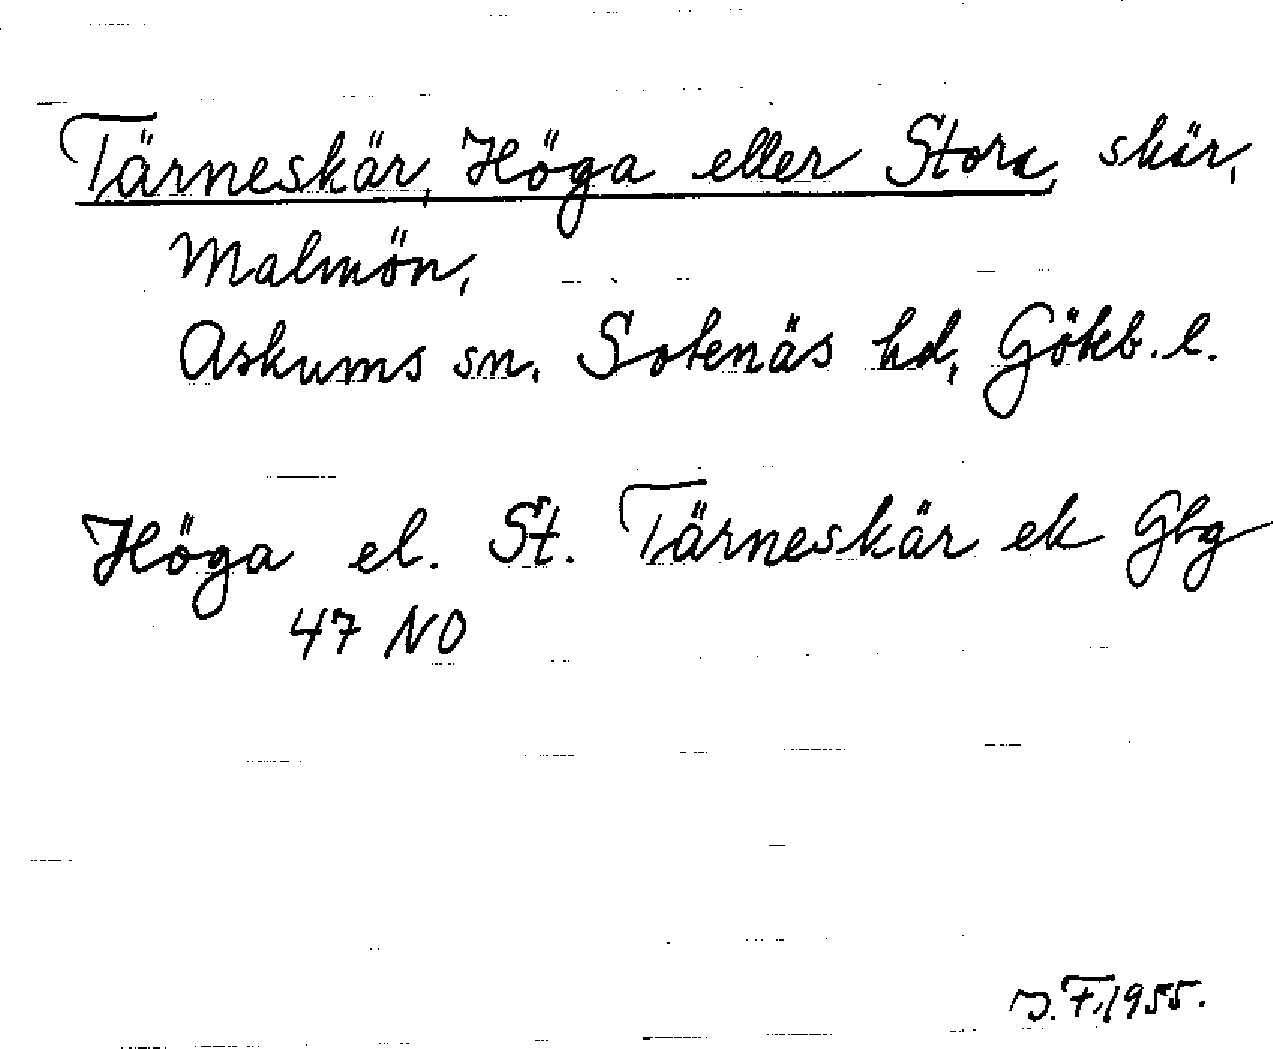 Tärneskär, Höga eller Stora, skär,
Malmön,
Askums sn, Sotenäs hd, Göteb. l.
Höga el. St. Tärneskär ek Gbg
47 NO
J.F. 1955.